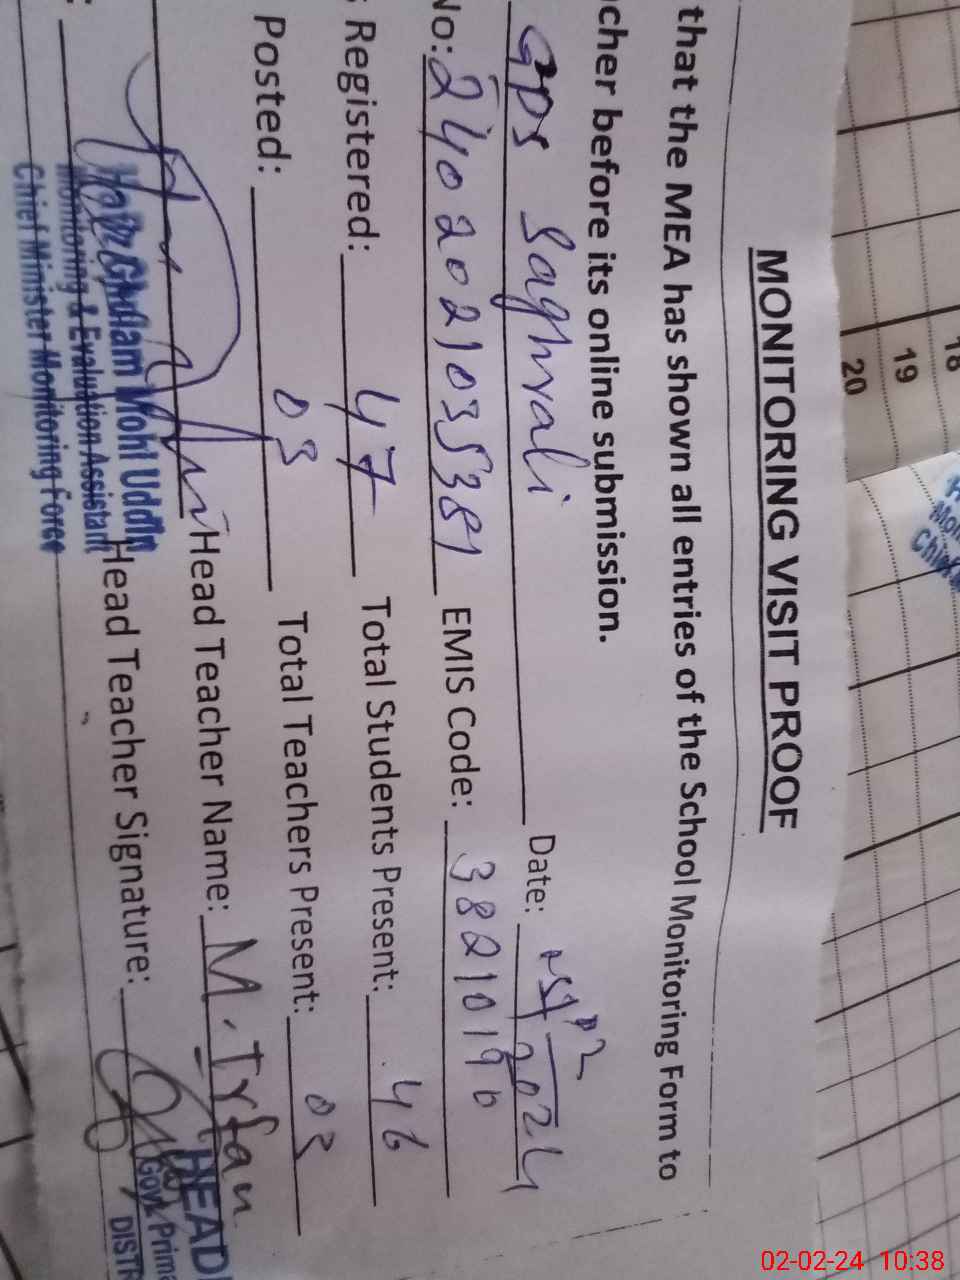 MONITORING VISIT PROOF
that the MEA has shown all entries of the School Monitoring Form to
cher before its online submission.
GPS Saghrali Date: 2024
No: 2402021035381 EMIS Code: 38210190
Registered: 47 Total Students Present: 46
Posted: 03 Total Teachers Present: 03
Head Teacher Name: M. Irfan
Head Teacher Signature:
Hafiz Ghulam Mohi Uddin
Monitoring & Evaluation Assistant
Chief Minister Monitoring Force
HEAD
Govt. Prima
DISTR
18
19
20
02-02-24 10:38